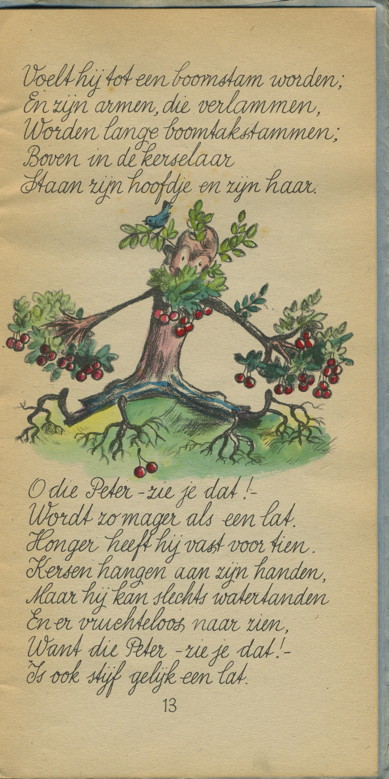 Voelt hij tot een boomstam worden;
En zijn armen, die verlammen,
Worden lange boomtakstammen;
Boven in de kerselaar
Staan zijn hoofdje en zijn haar.
O die Peter - zie je dat! -
Wordt zo mager als een lat.
Honger heeft hij vast voor tien.
Kersen hangen aan zijn handen,
Maar hij kan slechts watertanden
En er vruchteloos naar zien,
Want die Peter - zie je dat! -
Is ook stijf gelijk een lat.
13